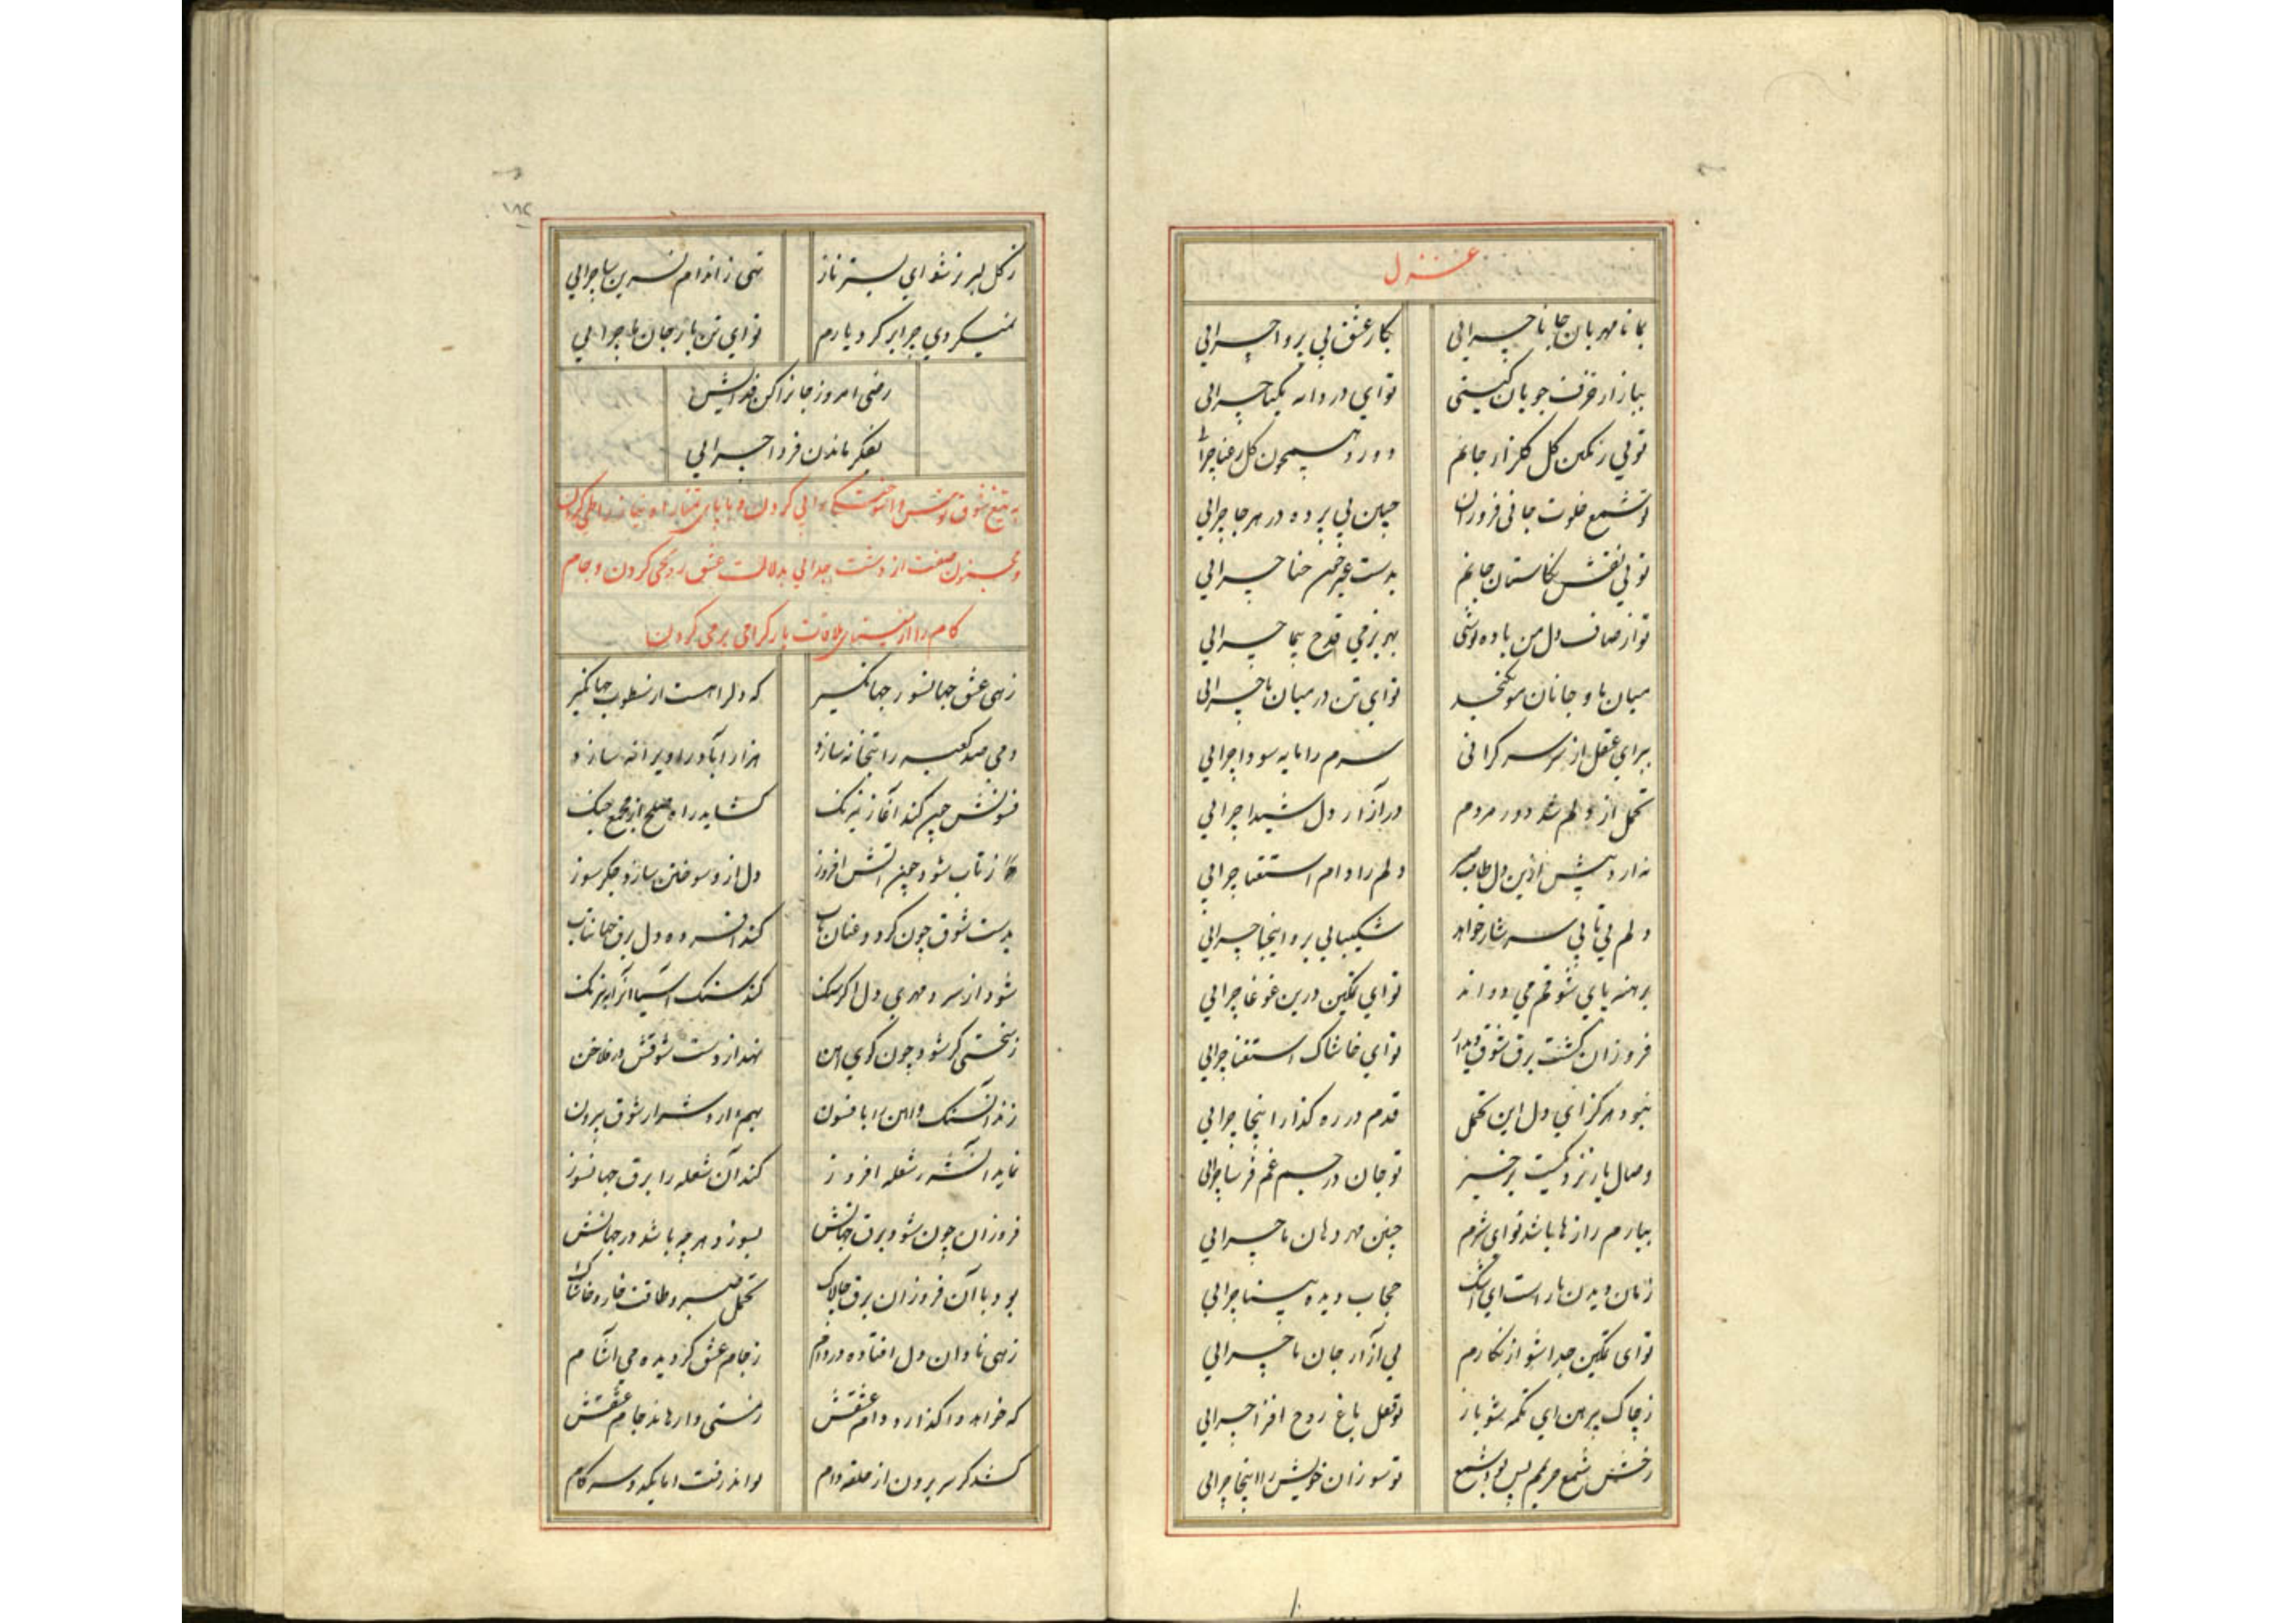 غزل
بما نامهربان جانا چرایی بکار عشق بی پروا چرایی
ببازار خزف جویان کیتی تو ای دردانه یکتا چرایی
تویی رنکین کل کلزار جانم دورو همچون کل رعنا چرایی
تو شمع خلوت جانی فروزان چنین بی پرده در هر جا چرایی
تویی نقش نکارستان جانم بدست غیر چون حنا چرایی
تو از صاف دل من باده نوشی بهر بزمی قدح پیما چرایی
میان ما و جانان مو نکنجد تو ای تن در میان ما چرایی
برای عقل از سر سر کرانی سرم را مایه سودا چرایی
تحمل از دلم شد دور مردم در آزار دل شیدا چرایی
ندارد پیش ازین دل طاقت دلم را دام استغنا چرایی
دلم بی تابی سرشار خواهد شکیبایی برو اینجا چرایی
برهنه پای شوقم می دواند تو ای تمکین درین غوغا چرایی
فروزان کشت برق شوق دیدار تو ای خاشاک استغنا چرایی
نبود هرکز ای دل این تحمل قدم در ره کذار اینجا چرایی
وصال یار نزدیکست برخیز تو جان در جسم غم فرسا چرایی
بیارم رازها باشد تو ای شرم چنین مهر دهان ما چرایی
زمان دیدن یار است ای اشک حجاب دیده بینا چرایی
تو ای تمکین جدا شو از نکارم پی آزار جان ما چرایی
ز چاک پیرهن ای تکمه شو باز تو قفل باغ روح افزا چرایی
رخش شمع حریمم بس بود شمع تو سوزان خویش را اینجا چرایی
۱۸۲
ز کل لبریز شو ای بستر ناز تهی ز اندام نسرین سا چرایی
نمیکردی چرا بر کرد یارم تو ای تن بار جان ما چرایی
رضی امروز جانرا کن فدایش
بفکر ماندن فردا چرایی
به تیغ شوق توش و اشوخت کبرایی کردن و با پای تمنا راه نیاز را طی کردن
و مجنون صفت از دشت جدایی بدلالت عشق رو بحی کردن و جام
کام را از ملاقات یار کرامی پر می کردن
زهی عشق جهانسوز جهانکیر که دلرا هست ازو خوب جهانکیر
دمی صد کعبه را بتخانه سازد هزار آباد را ویرانه سازد
فسونش چون کند آغاز نیرنک کشاید راه صلح از مجمع جنک
ز تاب شود چون آتش افروز دل ازو سوختن سازد جکرسوز
بدست شوق چون کردد عنان تاب کند افسرده دل برق جهانتاب
شود از سرد مهری دل اکر سنک کند سنک آسیا آنرا به نیرنک
ز سختی کر شود چون کوی آهن نهد از دست شوقش در فلاخن
زند آن سنک و آهن را با فسون بهم آرد شرار شوق بیرون
نماید آتش شعله افروز کند آن شعله را برق جهانسوز
فروزان چون شود برق جهانش بسوزد هرچه باشد در جهانش
بود با آن فروزان برق چالاک تحمل صبر و طاقت خار و خاشاک
زهی نادان دل افتاده در دام ز جام عشق کردیده می آشام
که خواهد واکذارد دام عشقش ز مستی وارهاند جام عشقش
کشد کر سر برون از حلقه دام تواند رفت اما یکدو سه کام